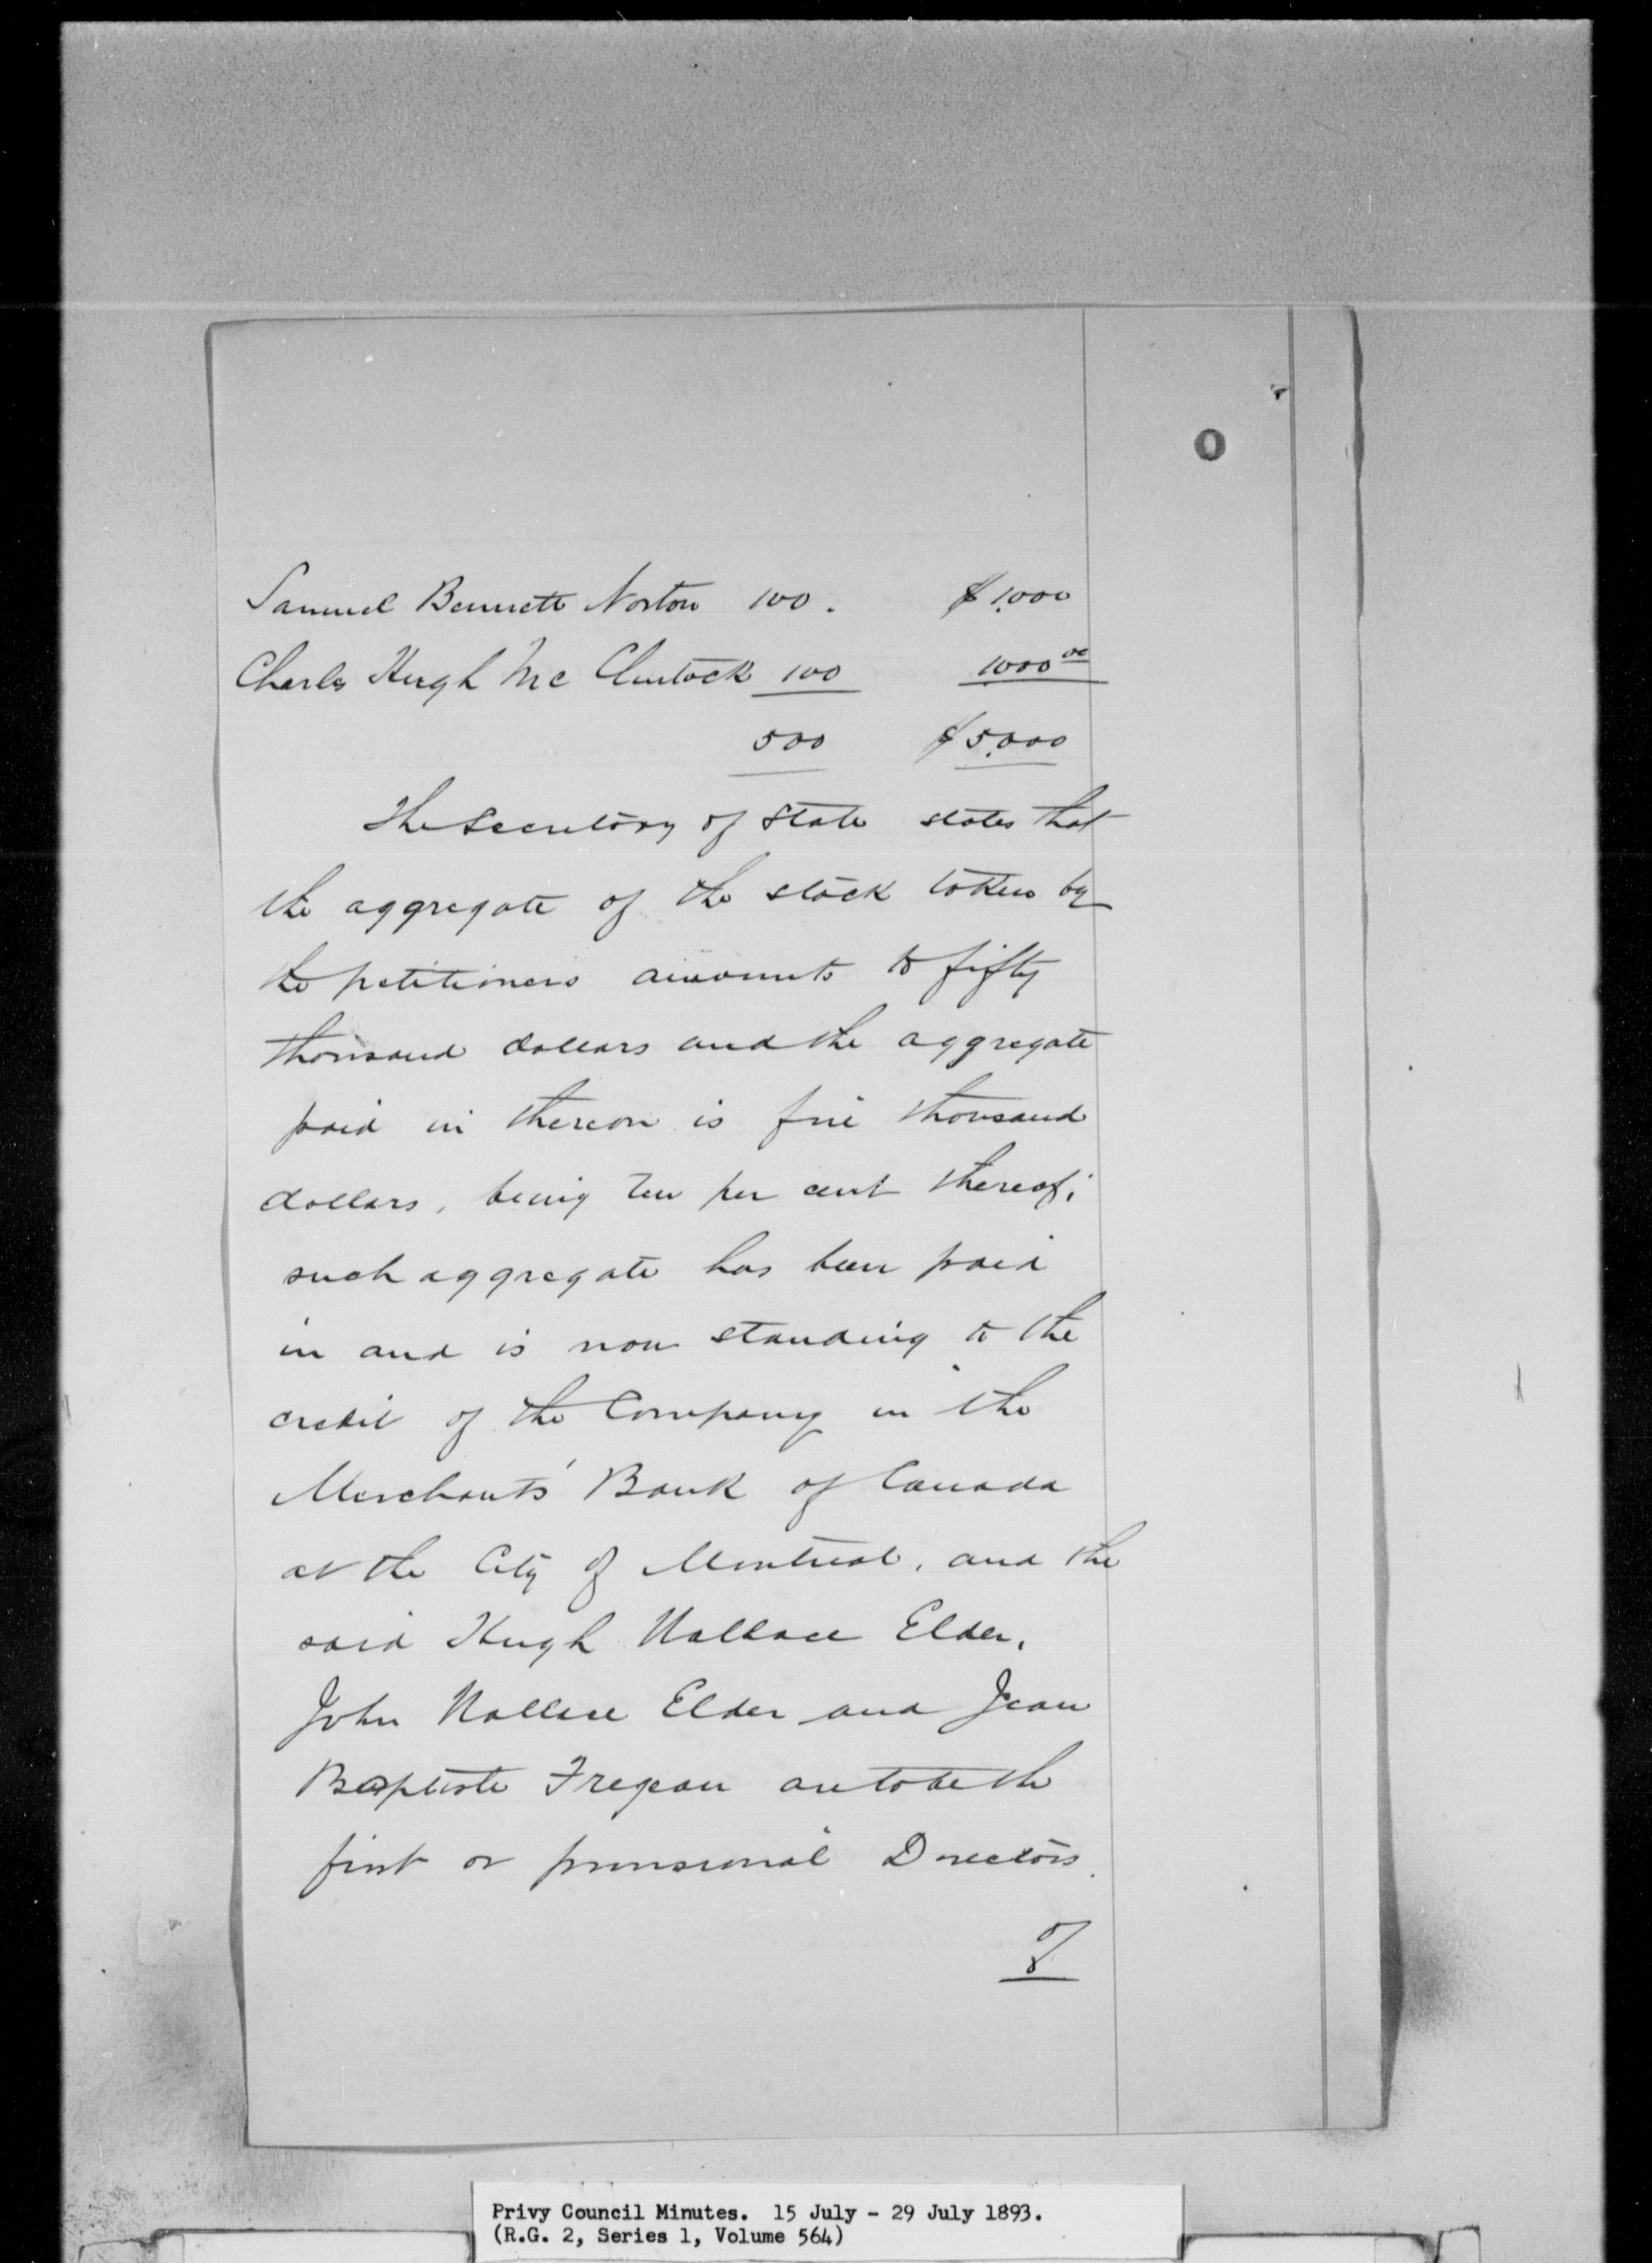 O
Samuel Bennett Norton 100. $1,000
Charles Hugh McClintock 100 1000 00
500 $5,000
The Secretary of State states that
the aggregate of the stock taken by
the petitioners amounts to fifty
thousand dollars and the aggregate
paid in thereon is five thousand
dollars, being ten per cent thereof;
such aggregate has been paid
in and is now standing to the
credit of the Company in the
Merchants' Bank of Canada
at the City of Montreal, and the
said Hugh Wallace Elder,
John Wallace Elder and Jean
Baptiste Fregeau are to be the
first or provisional Directors.
Privy Council Minutes. 15 July - 29 July 1893.
(R.G. 2, Series 1, Volume 564)